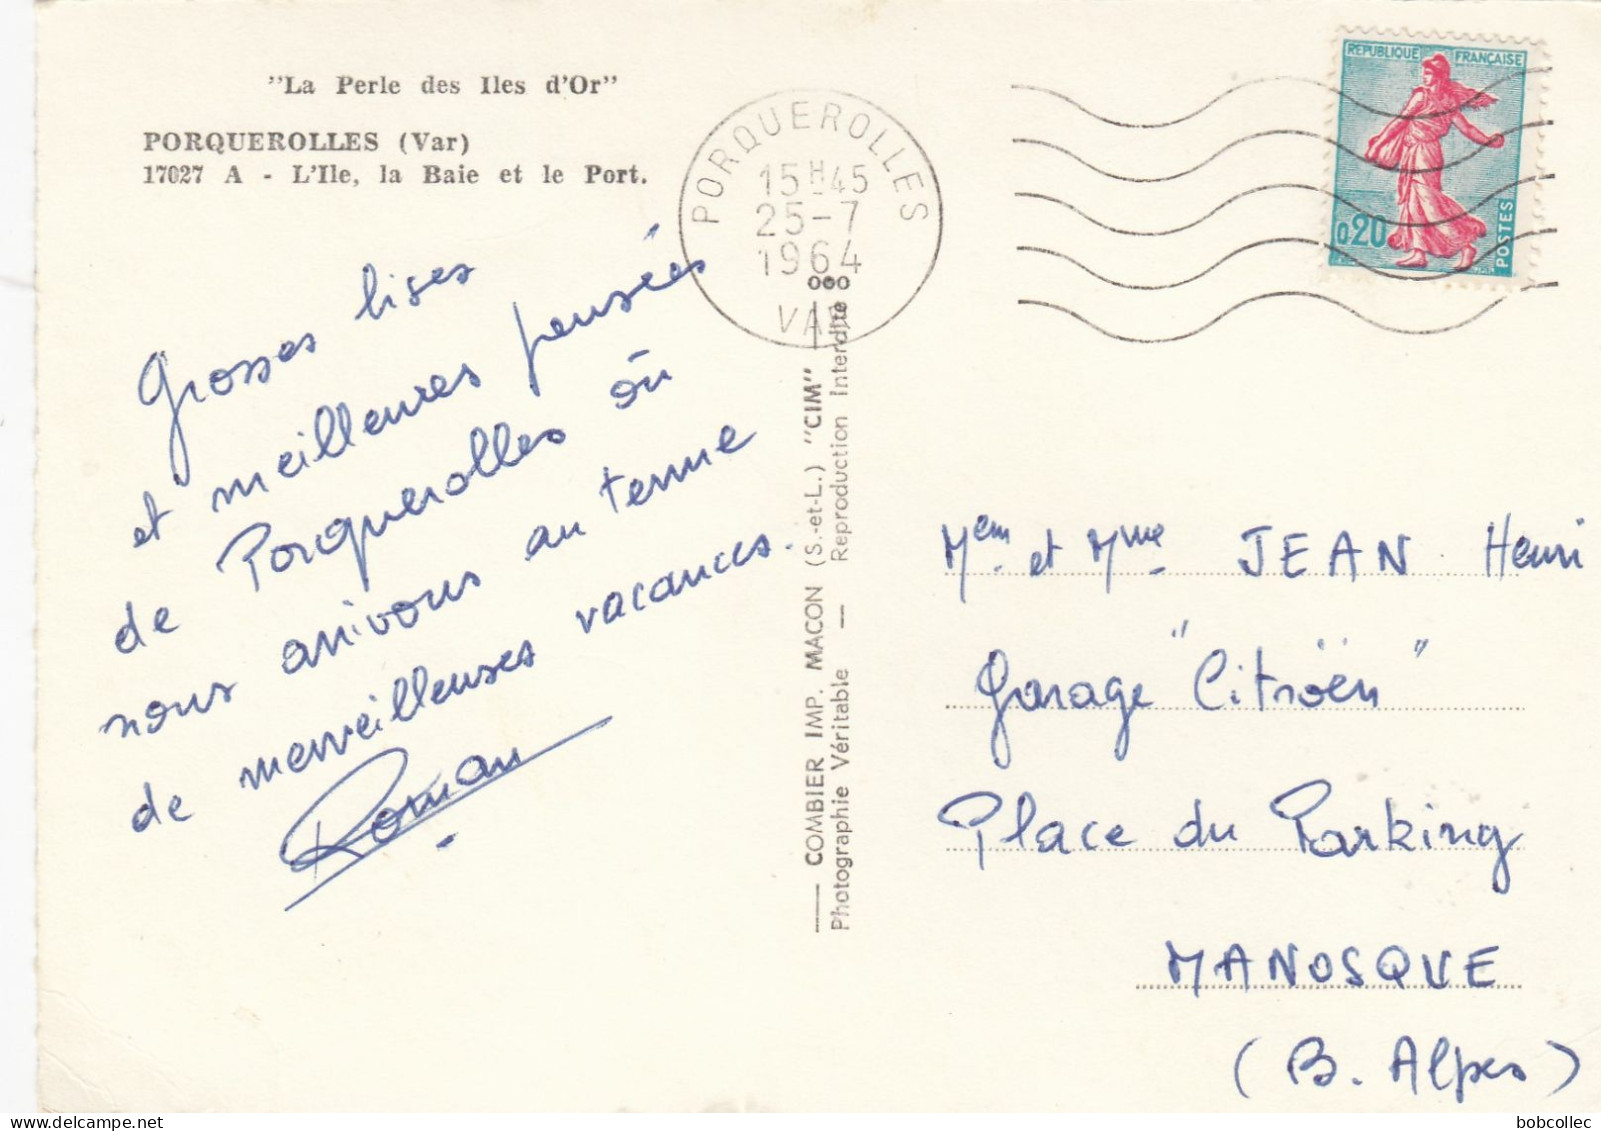 "La Perle des Iles d'Or"
PORQUEROLLES (Var)
17027 A - L'Ile, la Baie et le Port.
Grosses bises
et meilleures pensées
de Porquerolles où
nous arrivons au terme
de merveilleuses vacances.
Roman
PORQUEROLLES
15H45
25-7
1964
VAR
COMBIER IMP. MACON (S.-et-L.) "CIM"
Photographie Véritable — Reproduction Interdite
REPUBLIQUE FRANÇAISE
0,20
POSTES
Mem et Mme JEAN Henri
Garage "Citroën"
Place du Parking
MANOSQUE
(B. Alpes)
bobcollec